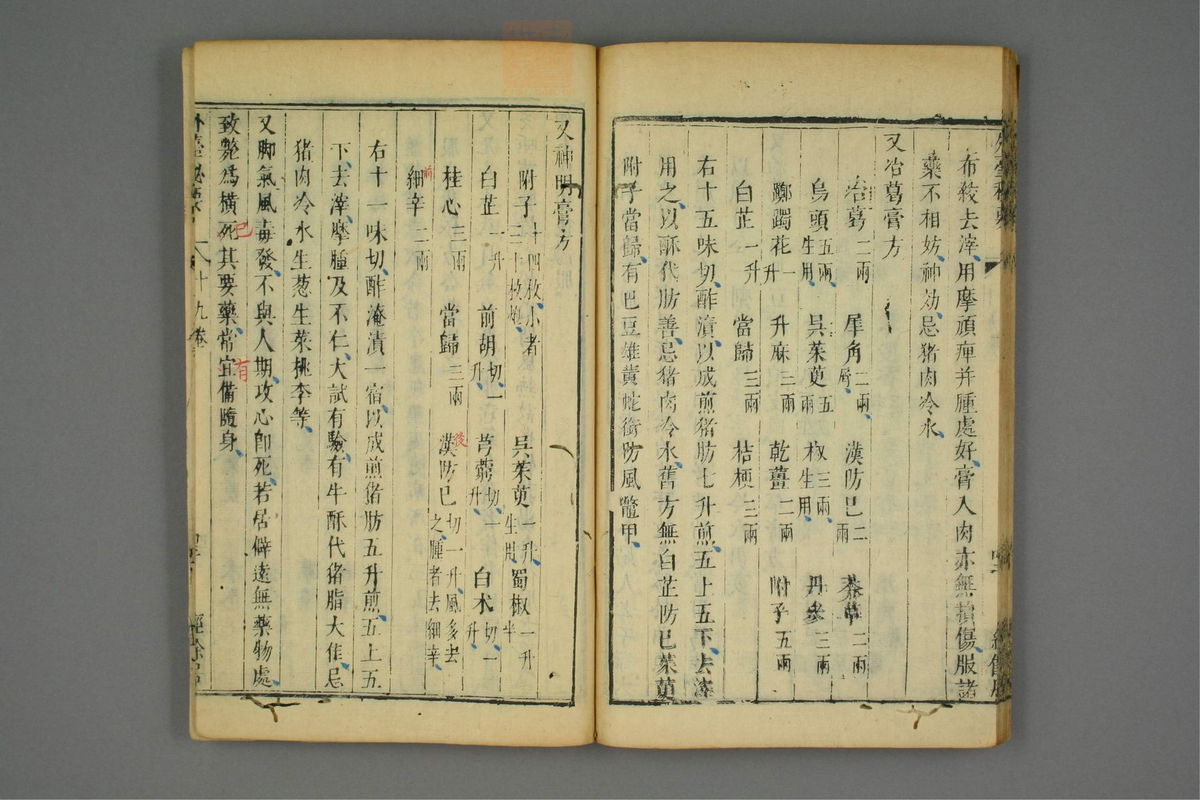 布絞去滓用摩頑痺并腫處好膏入肉亦無損傷服諸
藥不相妨神効忌猪肉冷水
又㓉葛膏方
㓉葛二兩 犀角二兩屑 漢防已二兩 莽草二兩
烏頭五兩生用 吳茱萸五兩 椒三兩生用 丹參三兩
躑躅花一升 升麻三兩 乾薑二兩 附子五兩
白芷一升 當歸三兩 桔梗三兩
右十五味切酢漬以成煎猪肪七升煎五上五下去滓
用之以酥代肪善忌猪肉冷水舊方無白芷防已茱萸
附子當歸有巴豆雄黃蛇銜防風鼈甲
又神明膏方
附子十四枚小者二十枚炮 吳茱萸一升生用 蜀椒一升半
白芷一升 前胡切一升 芎藭切一升 白朮切一升
桂心三兩 當歸三兩 漢防已切一升風多去之腫者去細辛
細辛二兩
右十一味切酢淹漬一宿以成煎猪肪五升煎五上五
下去滓摩腫及不仁大試有驗有牛酥代猪脂大佳忌
猪肉冷水生葱生菜桃李等
又脚氣風毒發不與人期攻心卽死若居僻遠無藥物處
致斃爲橫死其要藥常宜備隨身
外臺秘要 十九卷 經餘居